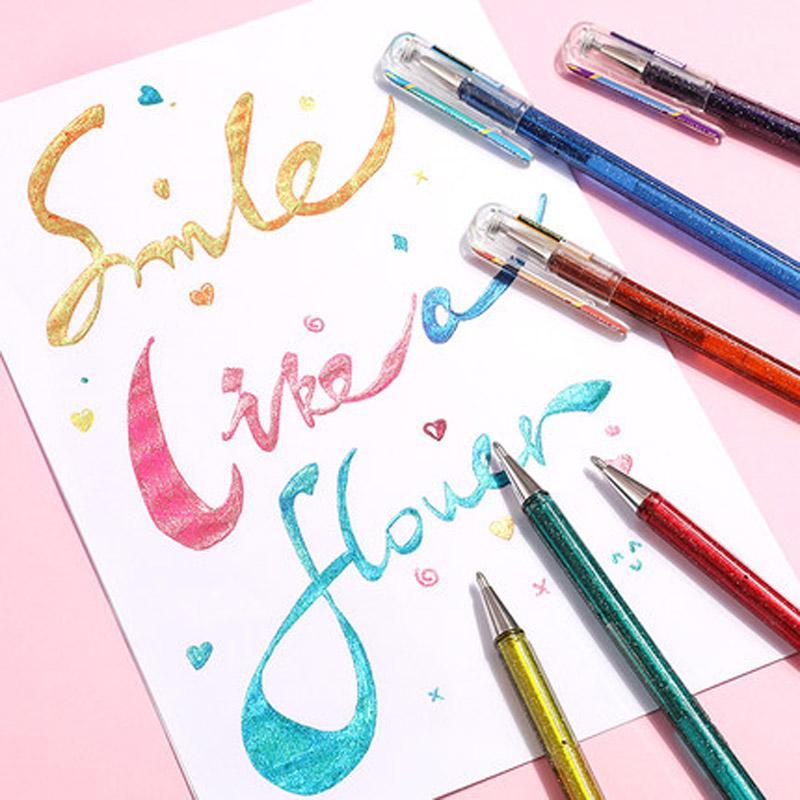 Smile
like a
flower